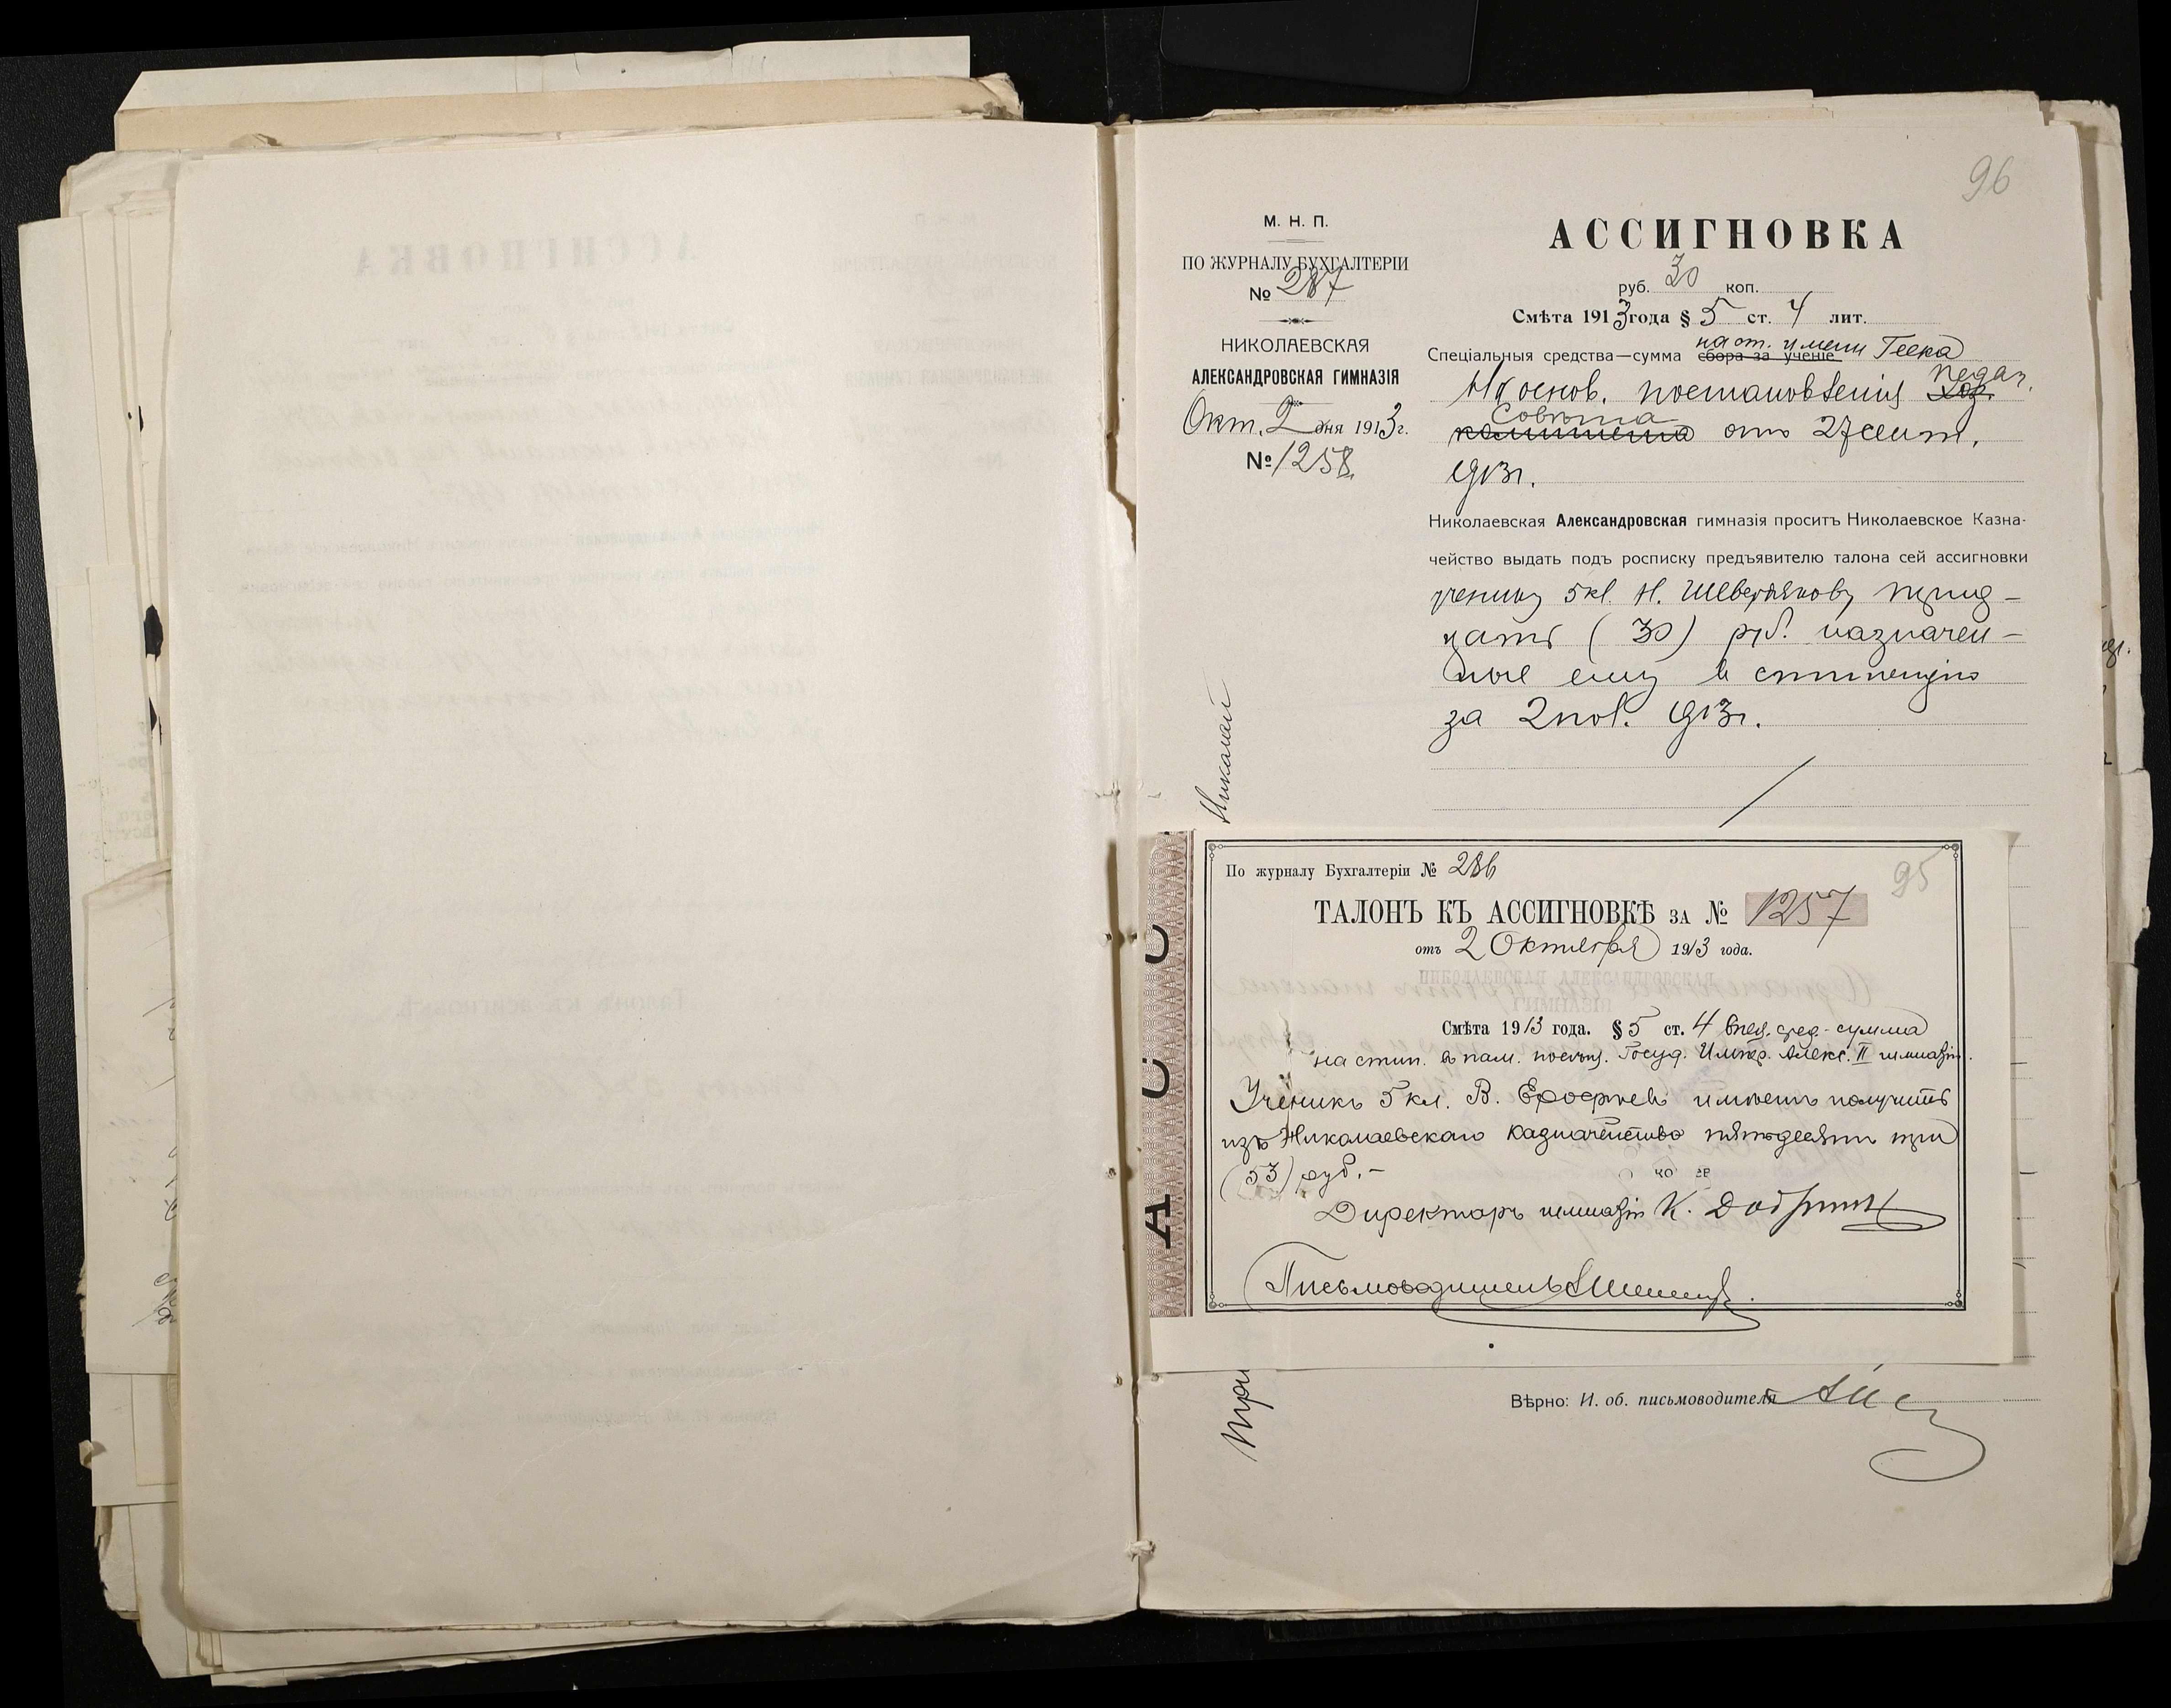 96
М. Н. П.
ПО ЖУРНАЛУ БУХГАЛТЕРІИ
№ 287
НИКОЛАЕВСКАЯ
АЛЕКСАНДРОВСКАЯ ГИМНАЗІЯ
Окт. 2 дня 1913 г.
№ 1258
АССИГНОВКА
руб. 30 коп.
Смѣта 1913 года § 5 ст. 4 лит.
на ст. имени Геека
Спеціальныя средства—сумма сбора за ученіе
На основ. постановленія Хоз. педаг.
комитета Совѣта отъ 27 сент.
1913 г.
Николаевская Александровская гимназія проситъ Николаевское Казна-
чейство выдать подъ росписку предъявителю талона сей ассигновки
ученику 5 кл. Н. Шевердякову трид-
цать (30) руб. назначен-
ные ему въ стипендію
за 2 пол. 1913 г.
Николай
По журналу Бухгалтеріи № 286
95
ТАЛОНЪ КЪ АССИГНОВКѢ ЗА № 1257
отъ 2 Октября 1913 года.
НИКОЛАЕВСКАЯ АЛЕКСАНДРОВСКАЯ
ГИМНАЗІЯ
Смѣта 1913 года. § 5 ст. 4 спец. сред. - сумма
на стип. въ пам. посѣщ. Госуд. Импер. Алекс. II гимназіи.
Ученикъ 5 кл. В. Ерофѣевъ имѣетъ получить
изъ Николаевскаго Казначейства пятьдесятъ три
(53) руб. –
Директоръ гимназіи К.
Письмоводитель
А С С С
Три
Вѣрно: И. об. письмоводителя